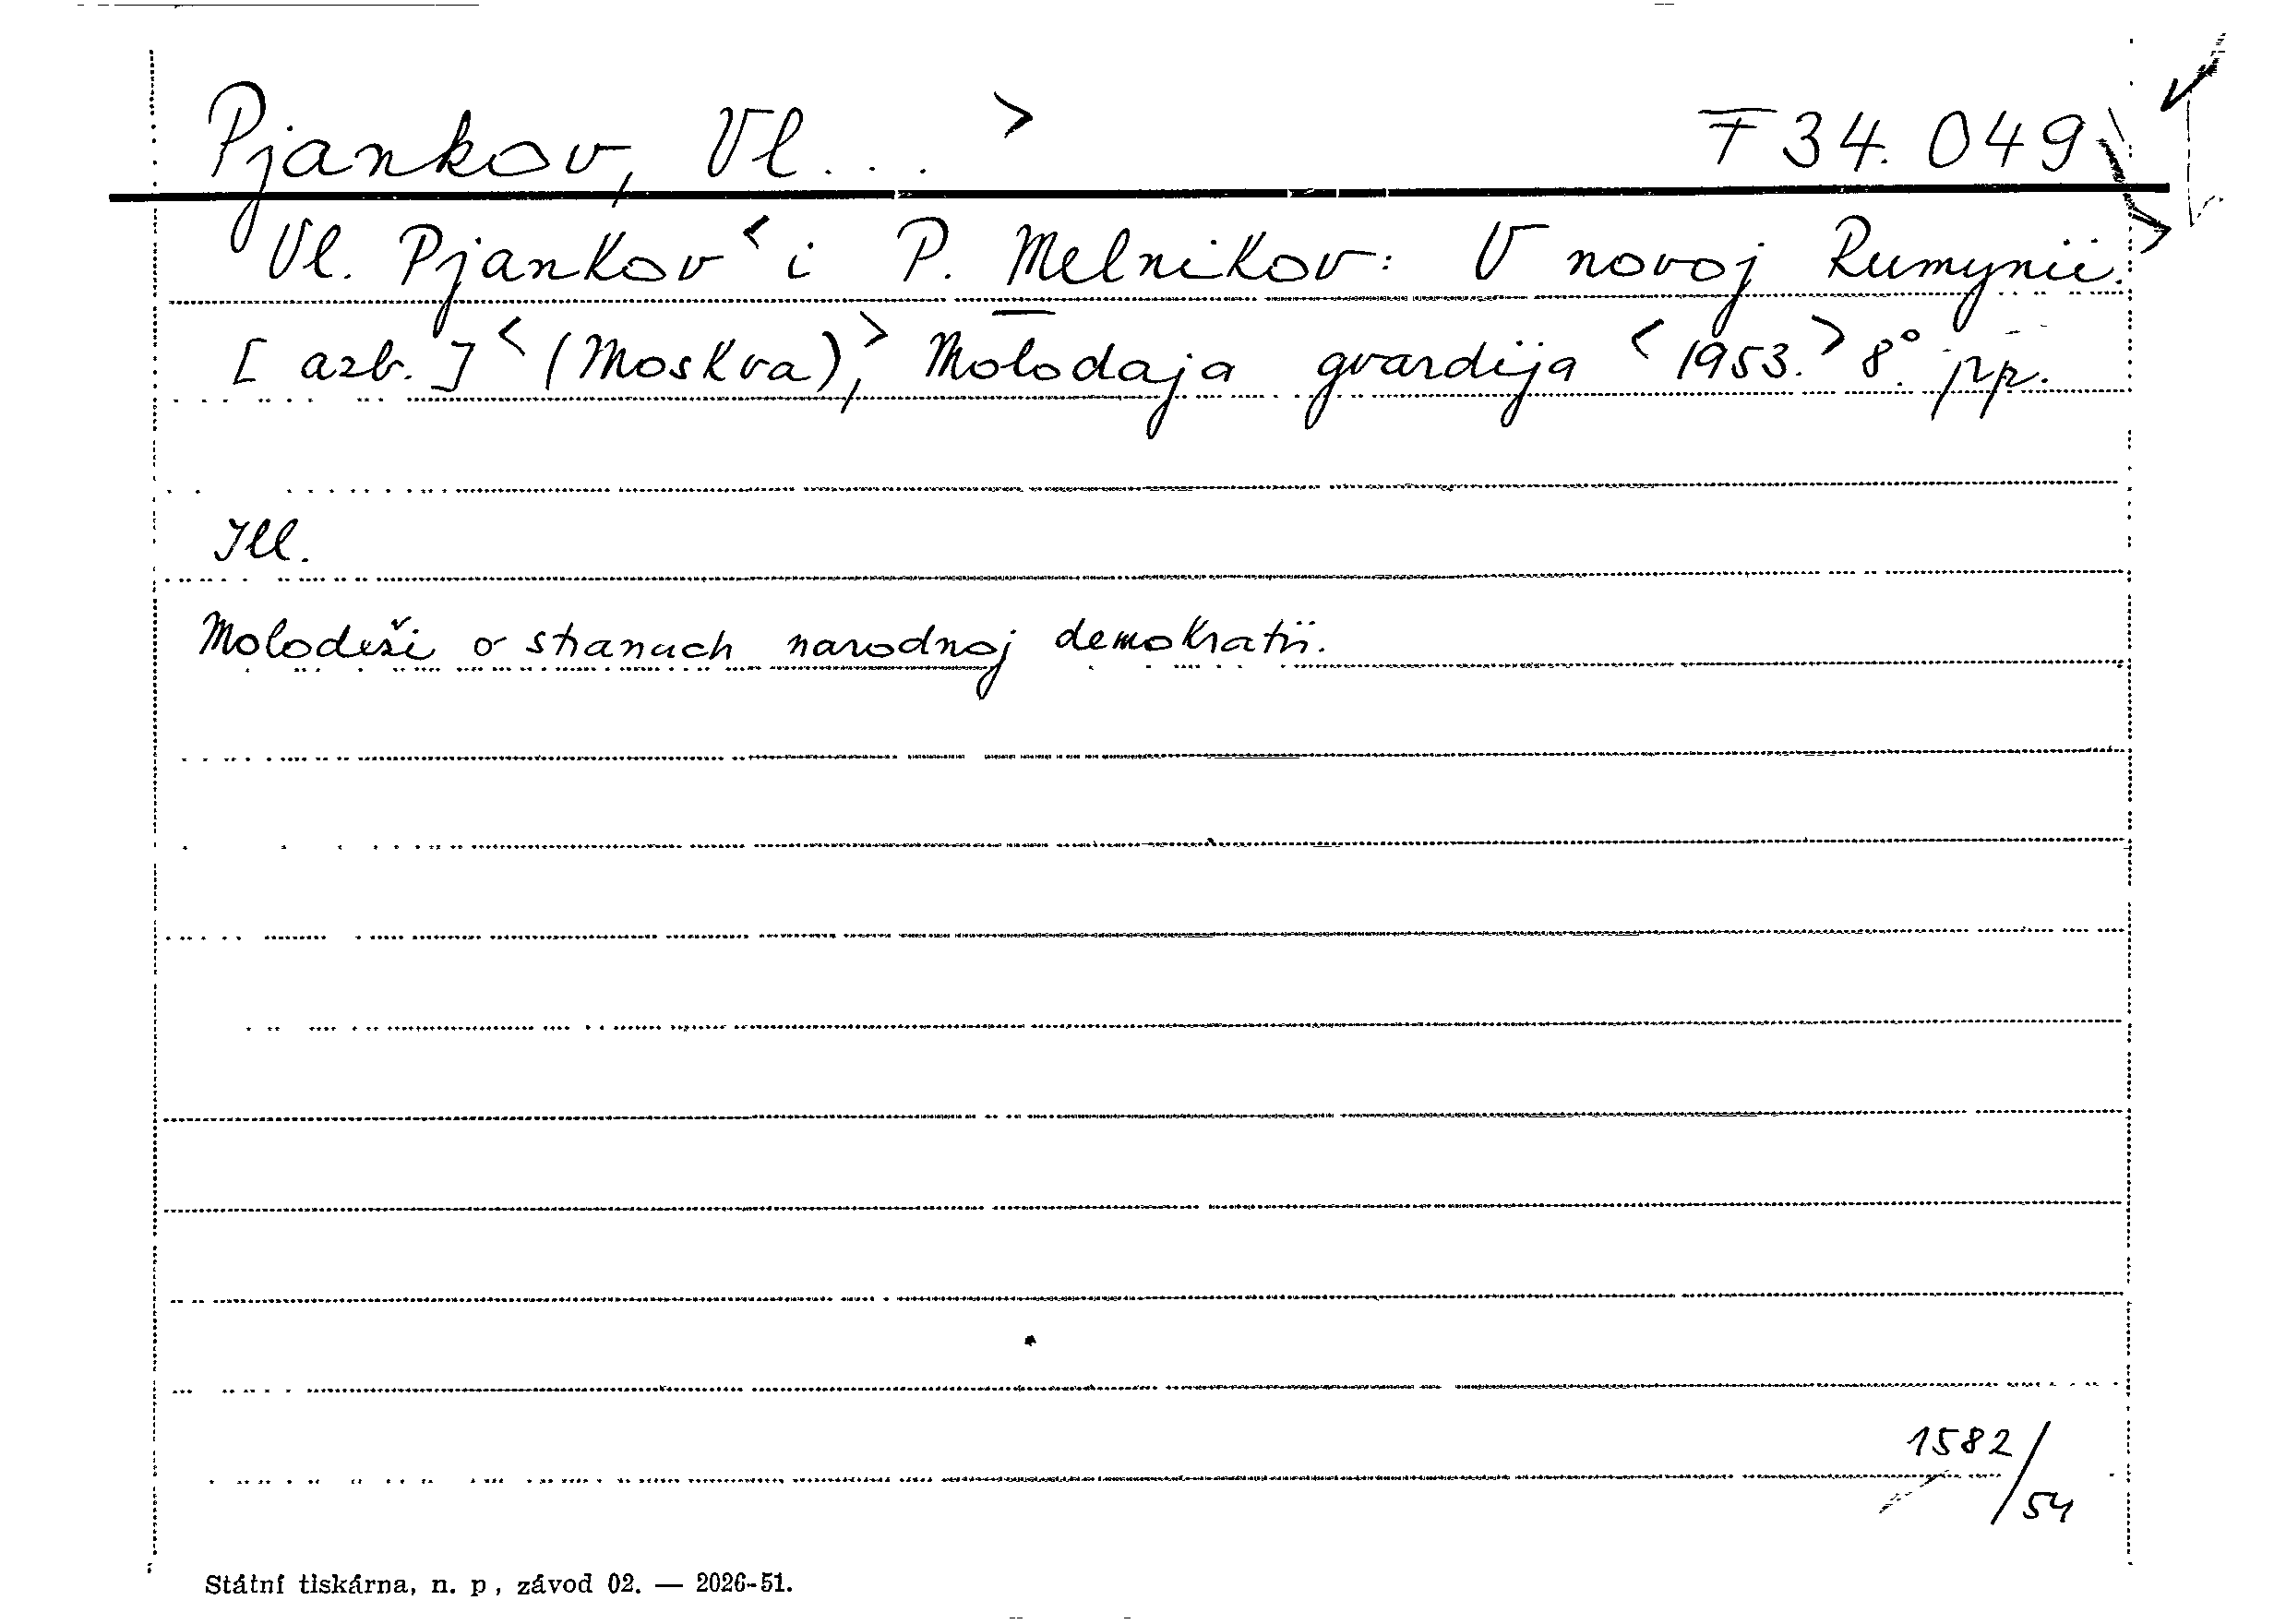 Pjankov, Vl... > F 34.049
Vl. Pjankov < i P. Melnikov: V novoj Rumynii.
[azb.] < (Moskva), > Molodaja gvardija < 1953. > 8°. pp.
Ill.
Molodeži o stranach narodnoj demokratii.
1582/54
Státní tiskárna, n. p, závod 02. — 2026-51.